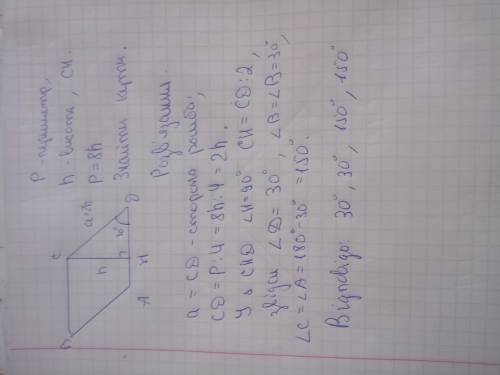 P - периметр,
h - висота, CH.
P = 8h
Знайти кути.
B
C
a=2h
h
30°
A
H
D
Розв'язання.
a = CD - сторона ромба;
CD = P:4 = 8h:4 = 2h.
У Δ CHD ∠H=90° CH = CD:2,
звідси ∠D = 30°, ∠B = ∠D = 30°,
∠C = ∠A = 180°-30° = 150°.
Відповідь: 30°, 30°, 150°, 150°